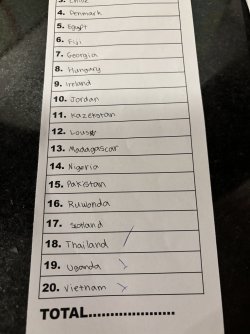 3. Chile
4. Denmark
5. Egypt
6. Fiji
7. Georgia
8. Hungary
9. Ireland
10. Jordan
11. Kazekstan
12.
13. Madagascar
14. Nigeria
15. Pakistan
16. Ruwonda
17. Scotland
18. Thailand
19. Uganda
20. Vietnam
TOTAL.....................